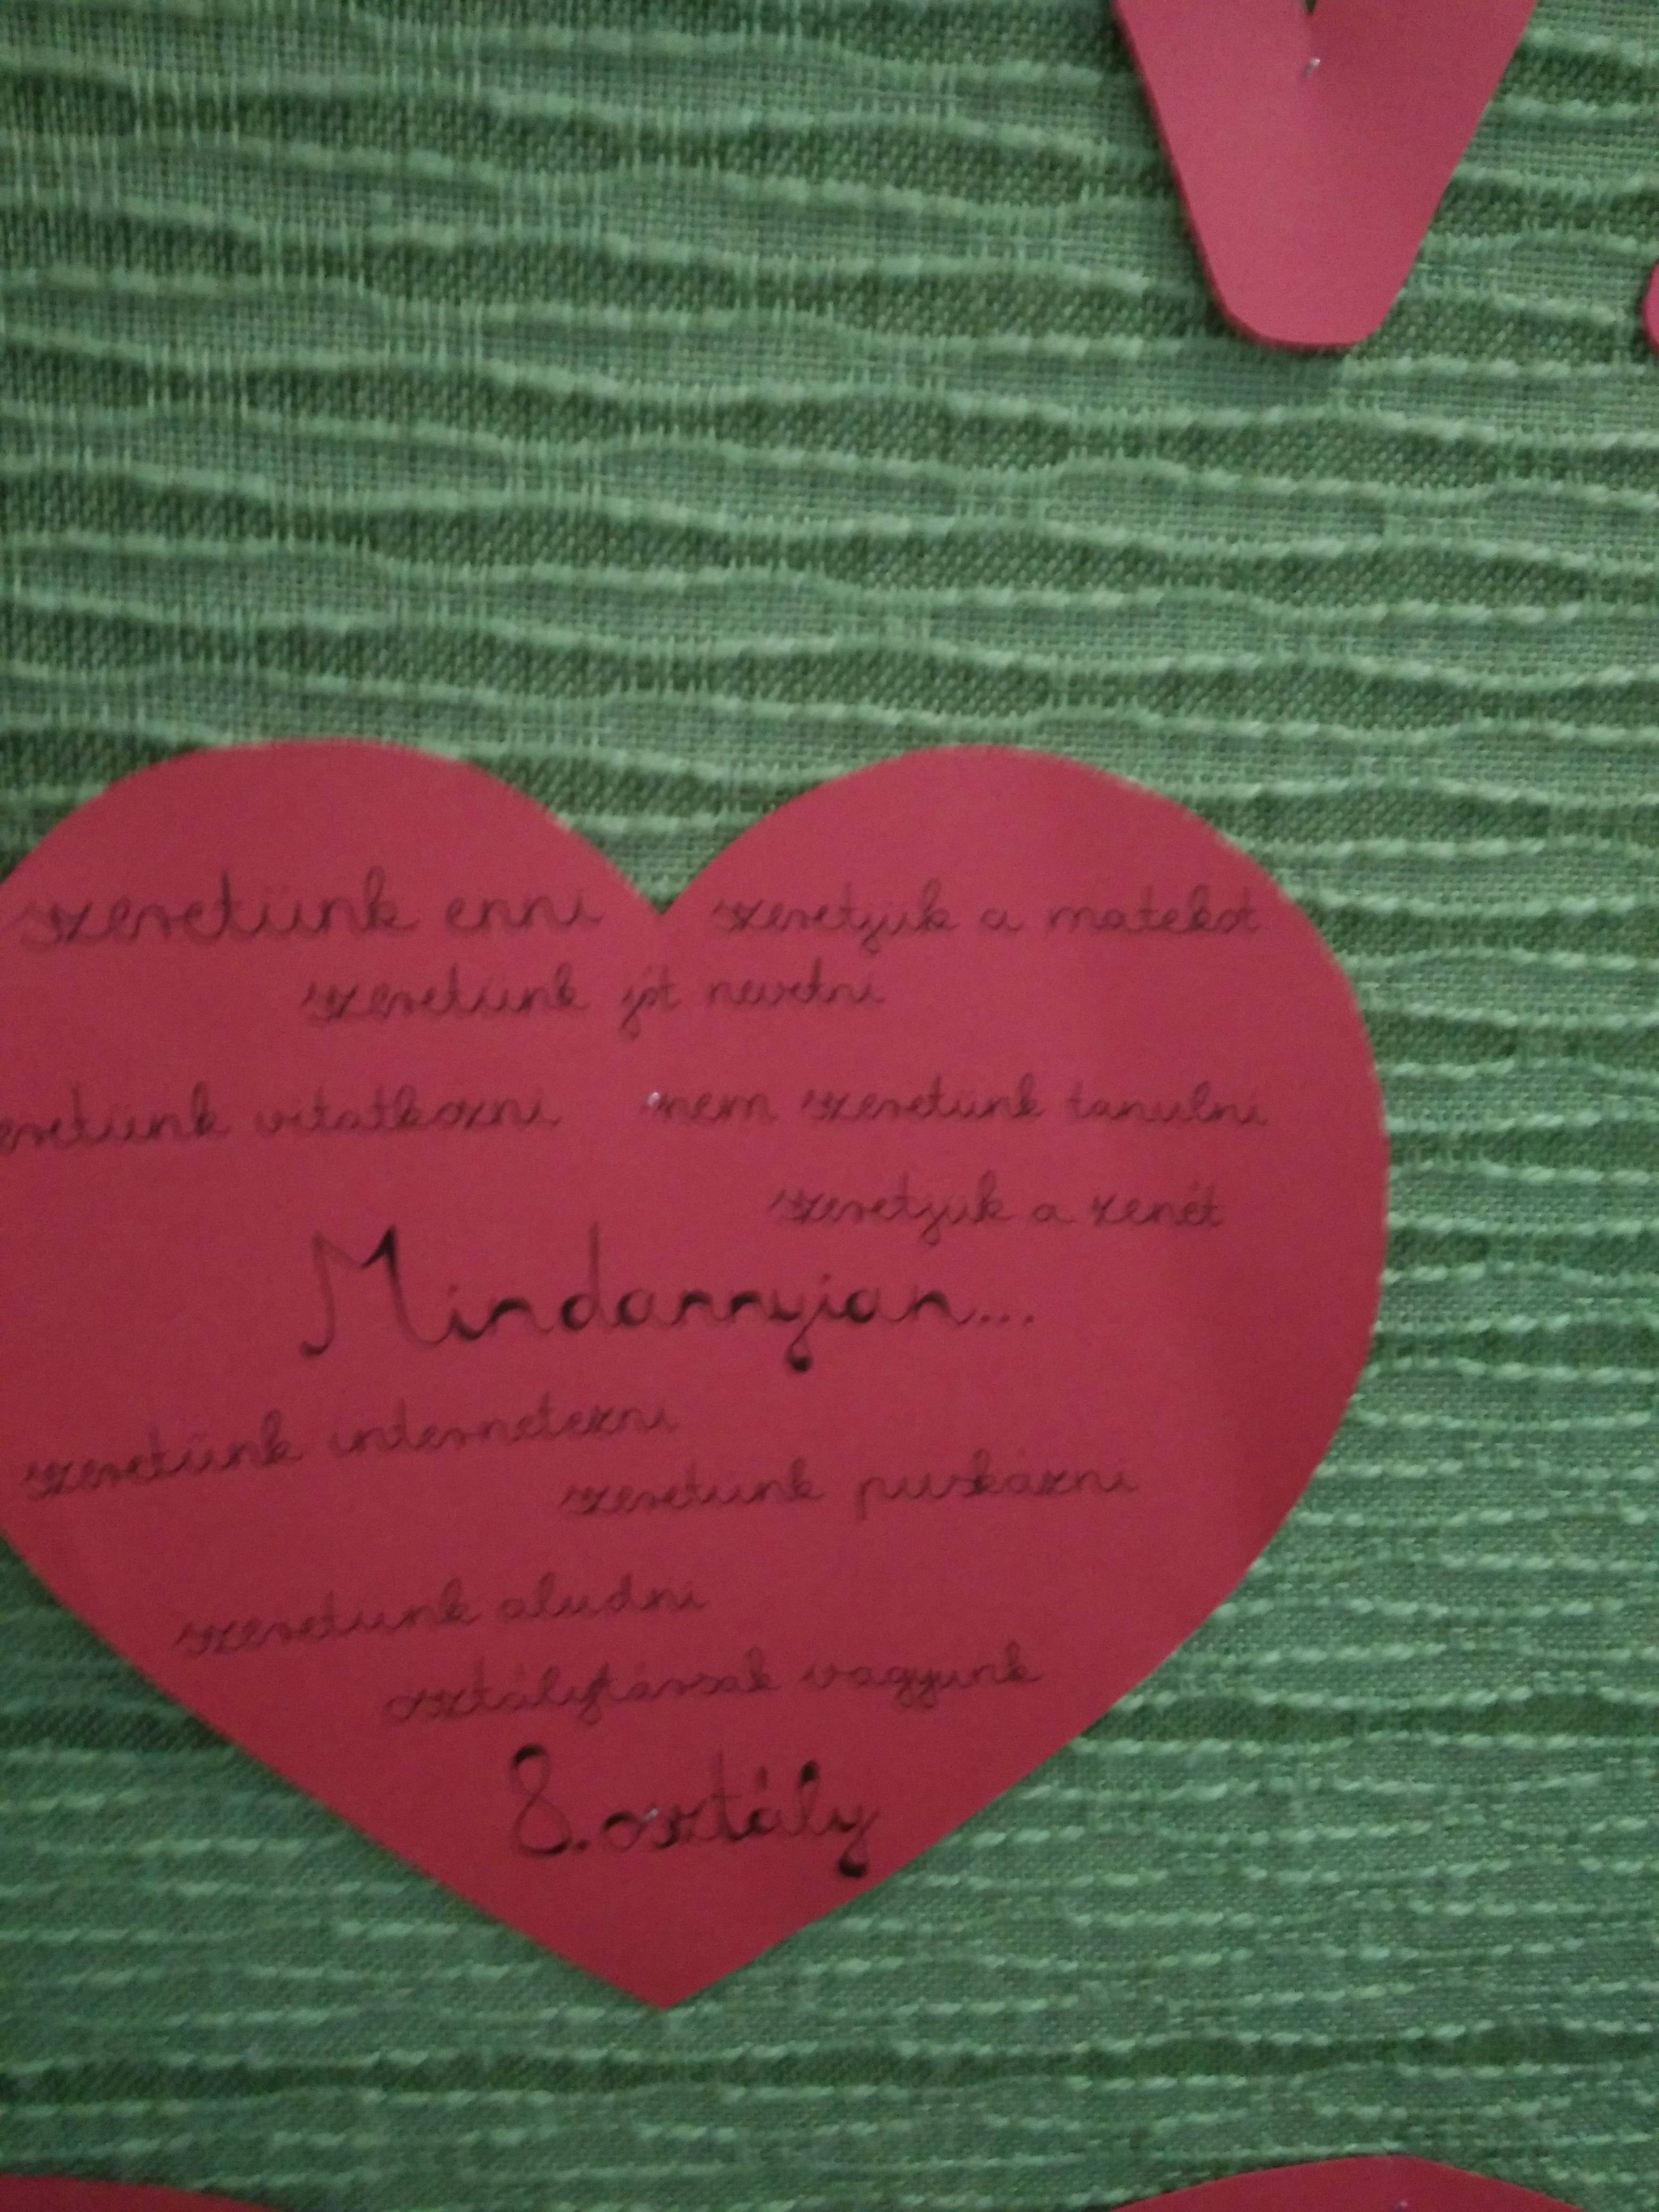 szeretünk enni szeretjük a matekot
szeretünk jót nevetni
eretünk vitatkozni nem szeretünk tanulni
szeretjük a zenét
Mindannyian...
szeretünk internetezni
szeretünk puskázni
szeretünk aludni
osztálytársak vagyunk
8. osztály